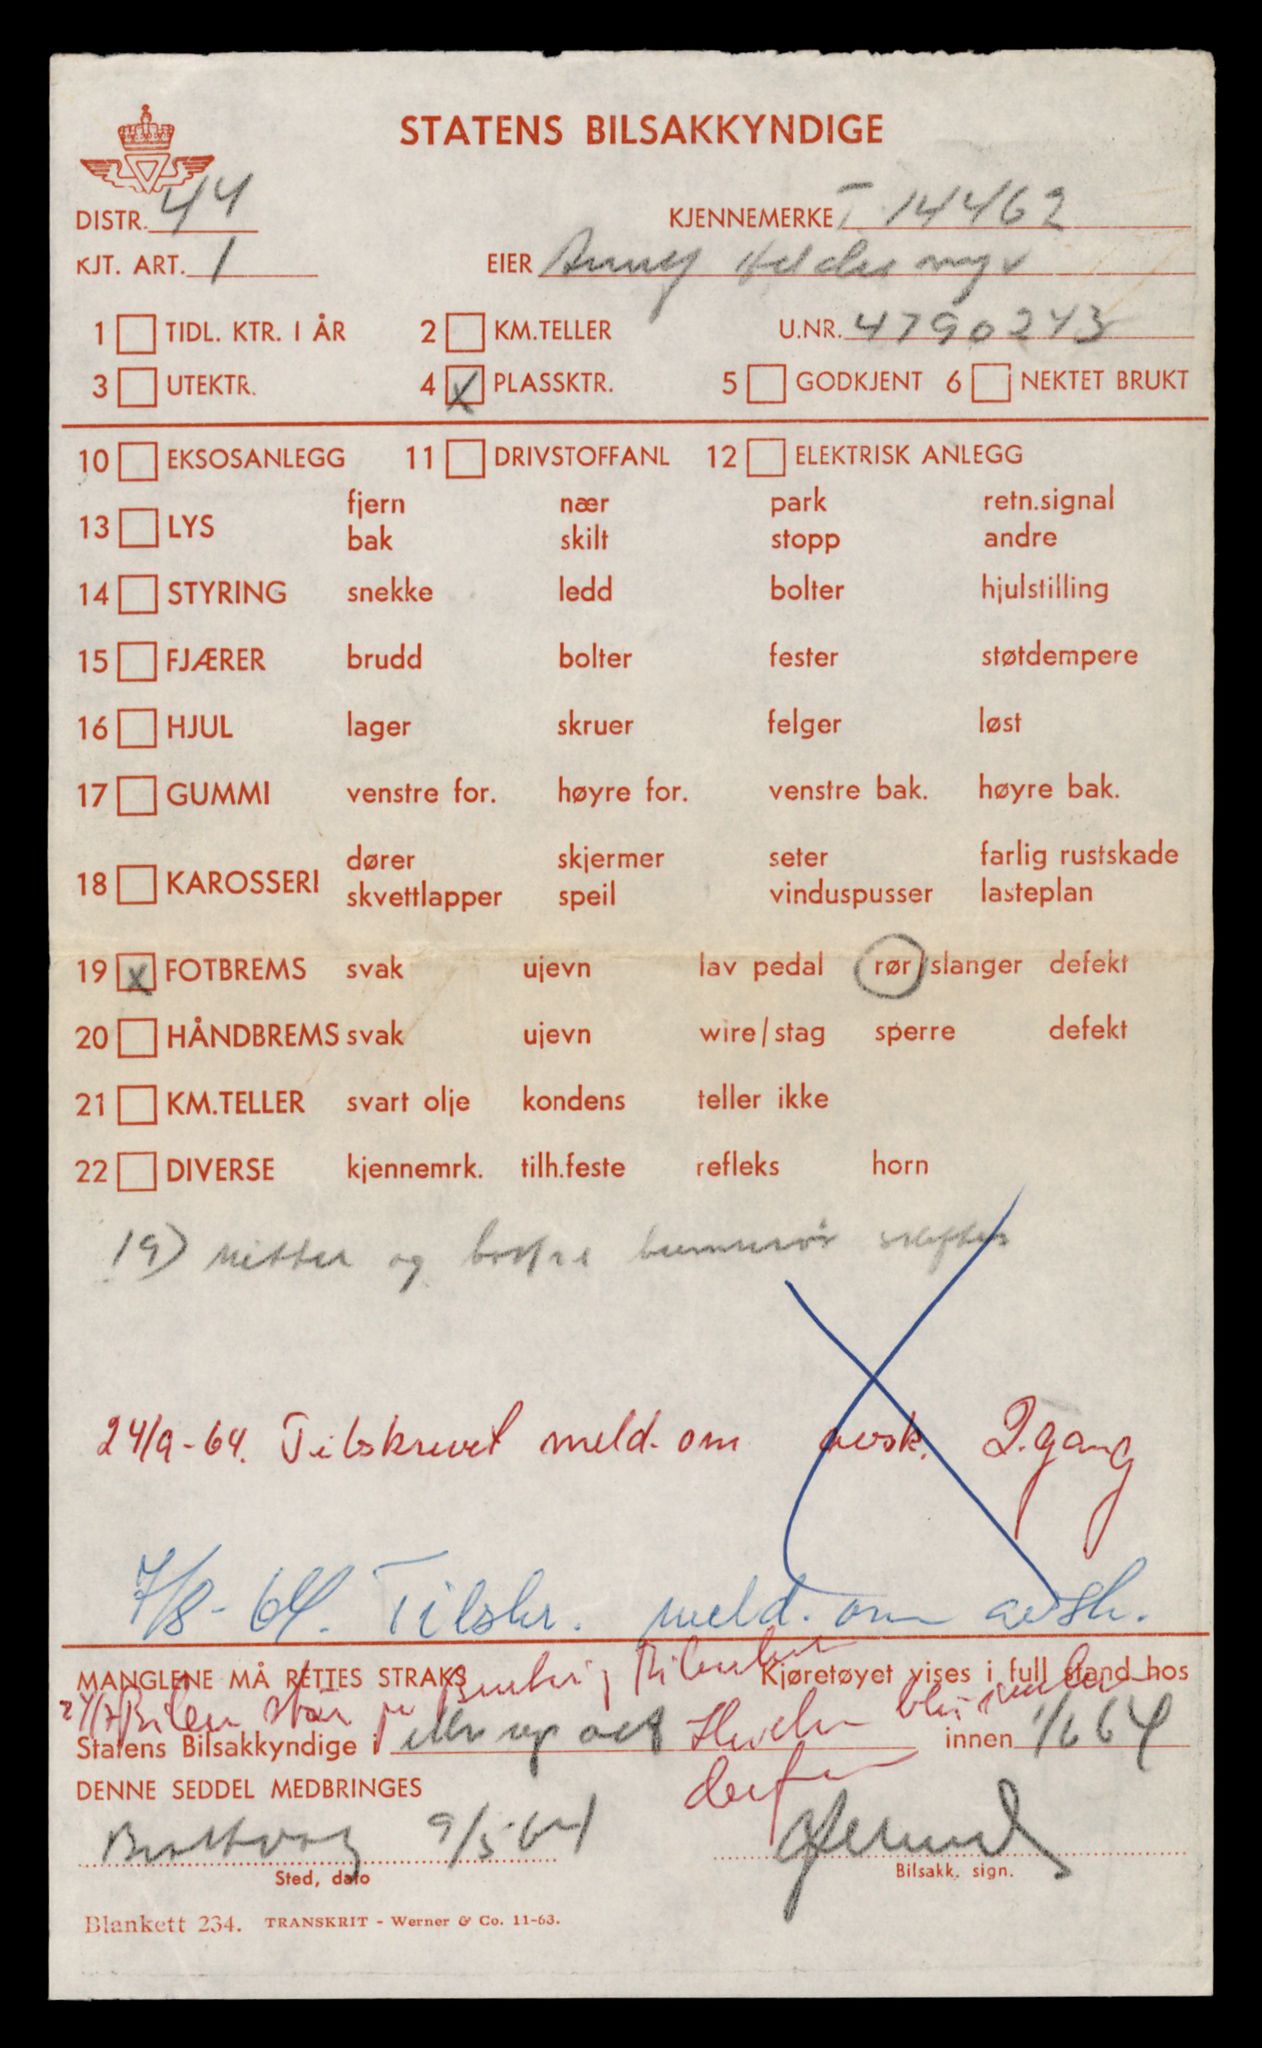 STATENS BILSAKKYNDIGE
DISTR. 44 KJENNEMERKE T-14462
KJT. ART. 1 EIER
1 TIDL. KTR. I ÅR 2 KM.TELLER U.NR. 4790243
3 UTEKTR. 4 X PLASSKTR. 5 GODKJENT 6 NEKTET BRUKT
10 EKSOSANLEGG 11 DRIVSTOFFANL 12 ELEKTRISK ANLEGG
13 LYS fjern nær park retn.signal
bak skilt stopp andre
14 STYRING snekke ledd bolter hjulstilling
15 FJÆRER brudd bolter fester støtdempere
16 HJUL lager skruer felger løst
17 GUMMI venstre for. høyre for. venstre bak. høyre bak.
18 KAROSSERI dører skjermer seter farlig rustskade
skvettlapper speil vinduspusser lasteplan
19 X FOTBREMS svak ujevn lav pedal rør/slanger defekt
20 HÅNDBREMS svak ujevn wire/stag sperre defekt
21 KM.TELLER svart olje kondens teller ikke
22 DIVERSE kjennemrk. tilh.feste refleks horn
19) og
24/9-64. Tilskrevet meld. om avsk. 2. gang
7/8-64. Tilskr. meld. om avsk.
MANGLENE MÅ RETTES STRAKS Kjøretøyet vises i full stand hos
Bilen står
Statens Bilsakkyndige i innen 1/6 64
DENNE SEDDEL MEDBRINGES
Brattvåg 9/5-64
Sted, dato Bilsakk. sign.
Blankett 234. TRANSKRIT - Werner & Co. 11-63.